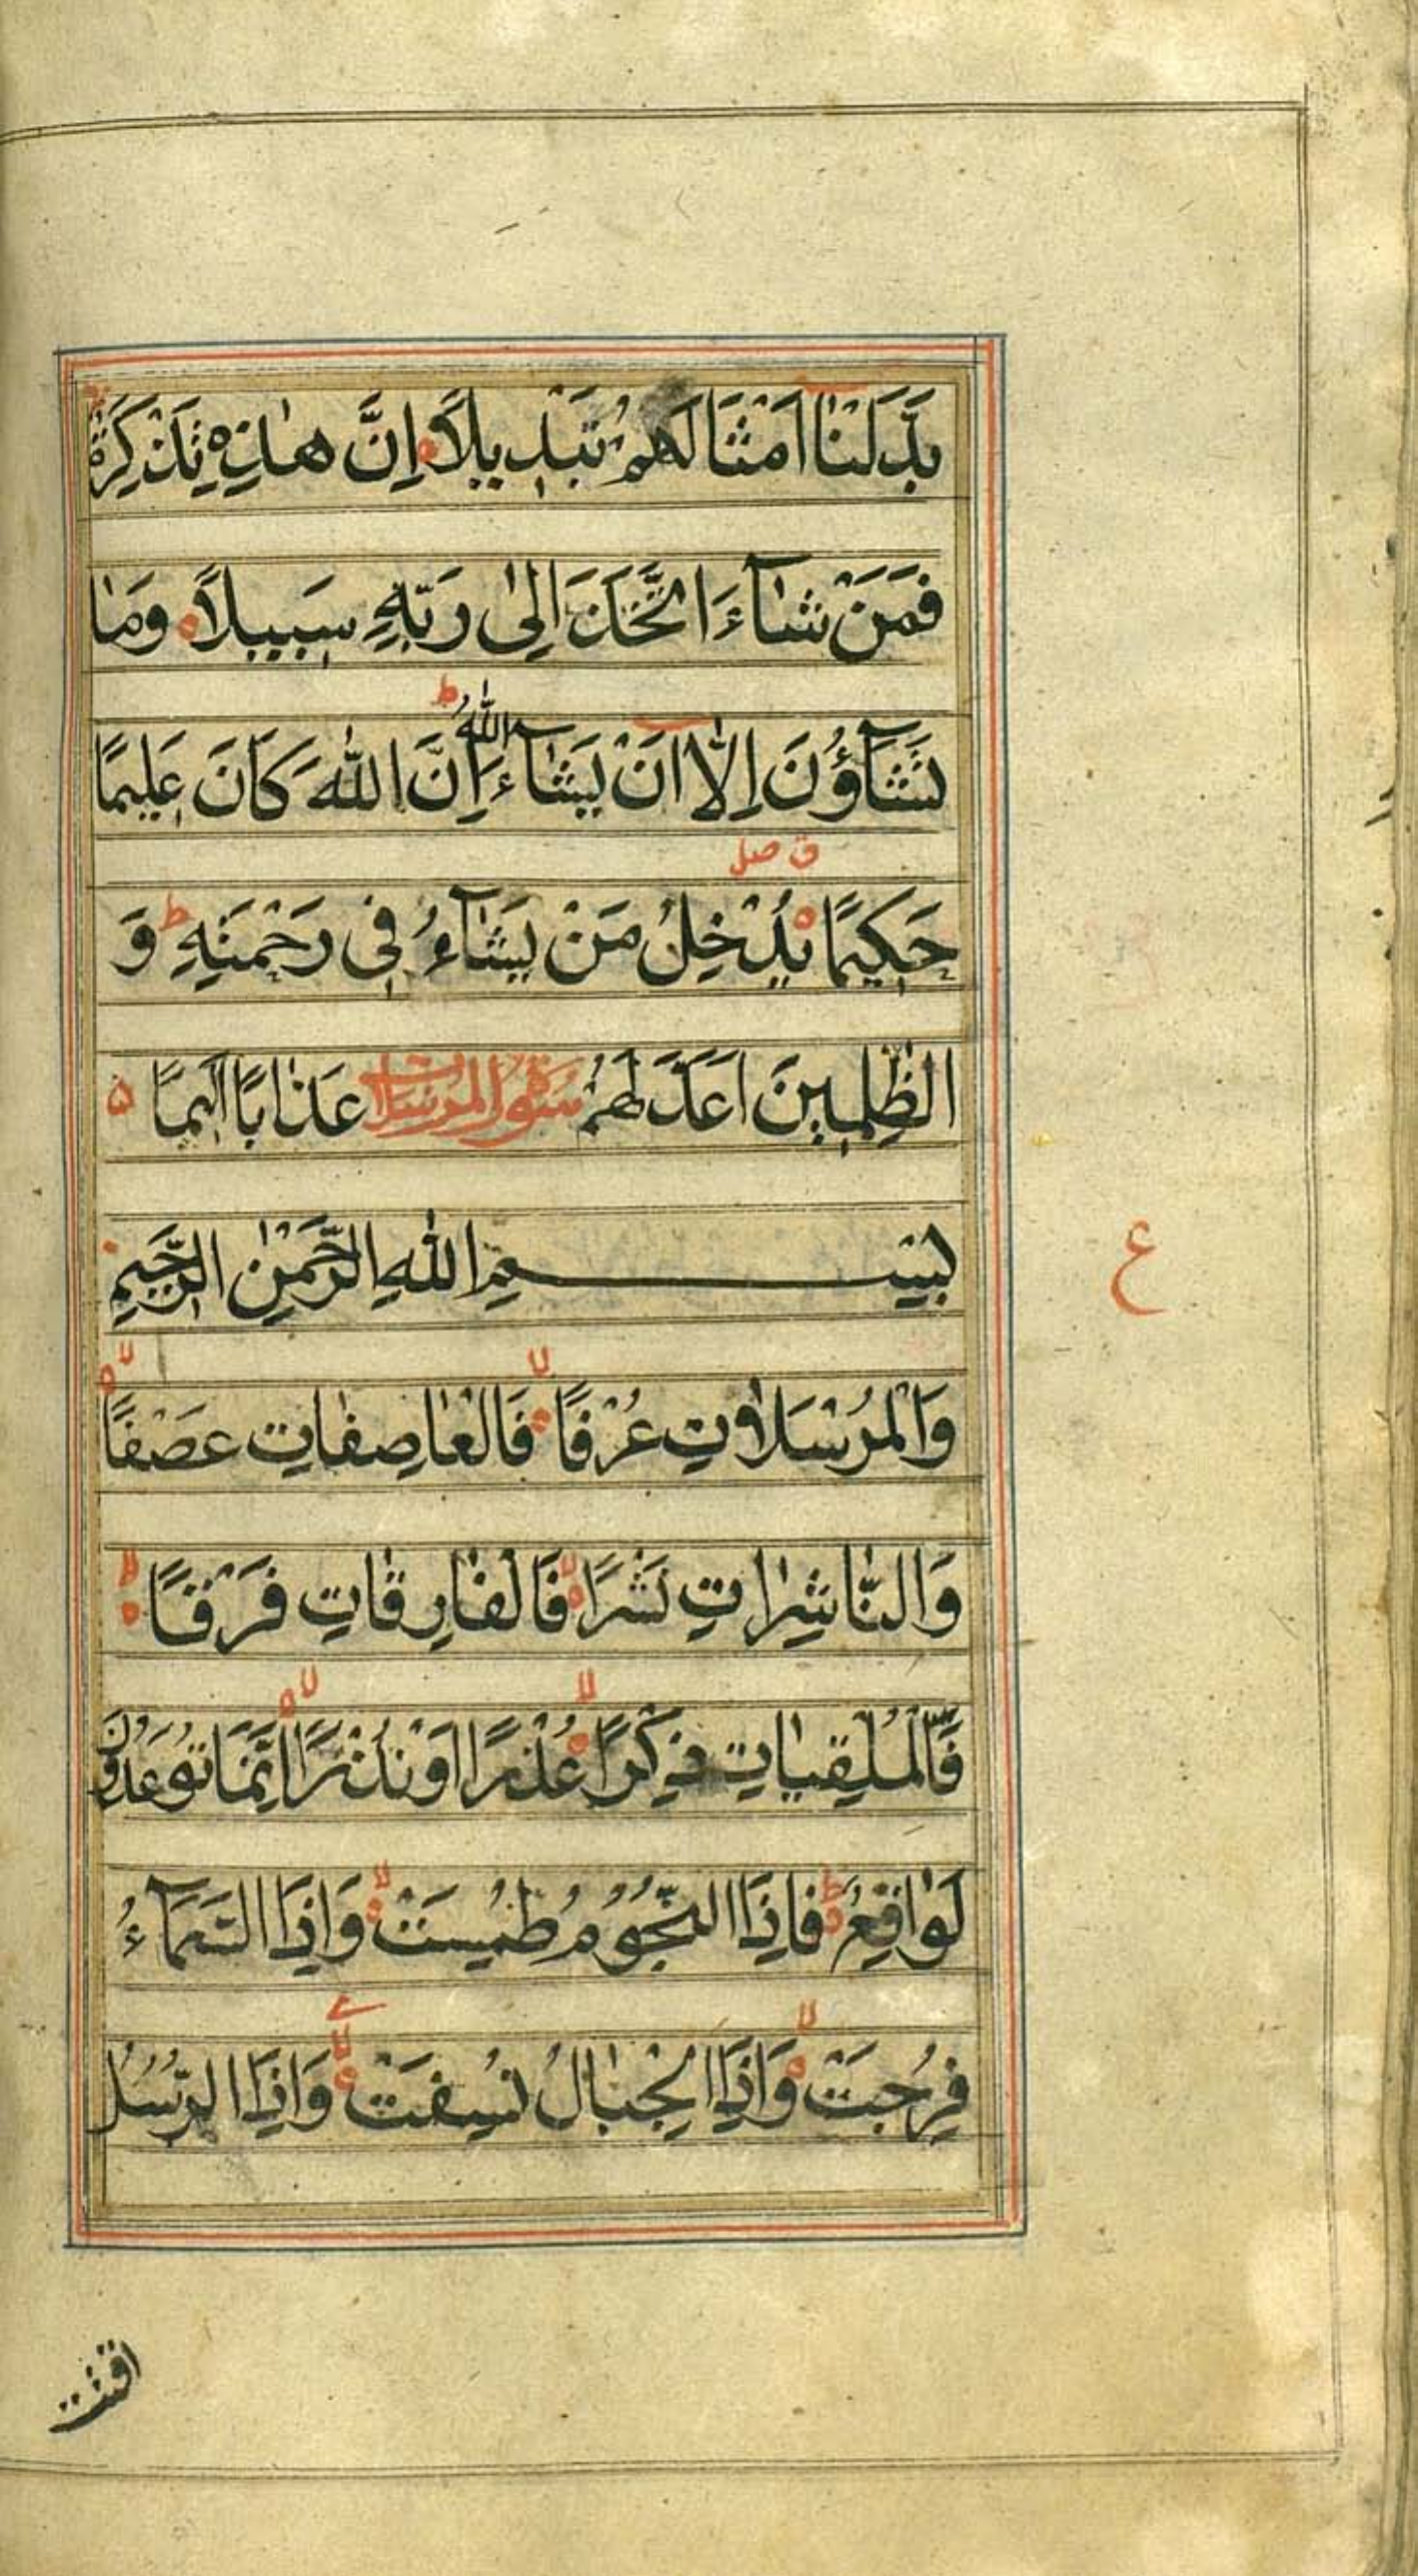 بَدَّلْنَا اَمْثَالَهُمْ تَبْدِيلًا اِنَّ هٰذِهٖ تَذْكِرَةٌ
فَمَنْ شَآءَ اتَّخَذَ اِلٰى رَبِّهٖ سَبِيلًا وَمَا
تَشَآؤُنَ اِلَّا اَنْ يَشَآءَ اللّٰهُ ط اِنَّ اللّٰهَ كَانَ عَلِيمًا
ق صل
حَكِيمًا يُدْخِلُ مَنْ يَشَآءُ فِى رَحْمَتِهٖ ط وَ
الظّٰلِمِينَ اَعَدَّ لَهُمْ سورة المرسلات عَذَابًا اَلِيمًا
بِسْمِ اللّٰهِ الرَّحْمٰنِ الرَّحِيمِ
ع
وَالْمُرْسَلَاتِ عُرْفًا لا فَالْعَاصِفَاتِ عَصْفًا لا
وَالنَّاشِرَاتِ نَشْرًا لا فَالْفَارِقَاتِ فَرْقًا لا
فَالْمُلْقِيَاتِ ذِكْرًا لا عُذْرًا اَوْ نُذْرًا لا اِنَّمَا تُوعَدُونَ
لَوَاقِعٌ ط فَاِذَا النُّجُومُ طُمِسَتْ لا وَاِذَا السَّمَآءُ
فُرِجَتْ لا وَاِذَا الْجِبَالُ نُسِفَتْ لا وَاِذَا الرُّسُلُ
اقتت